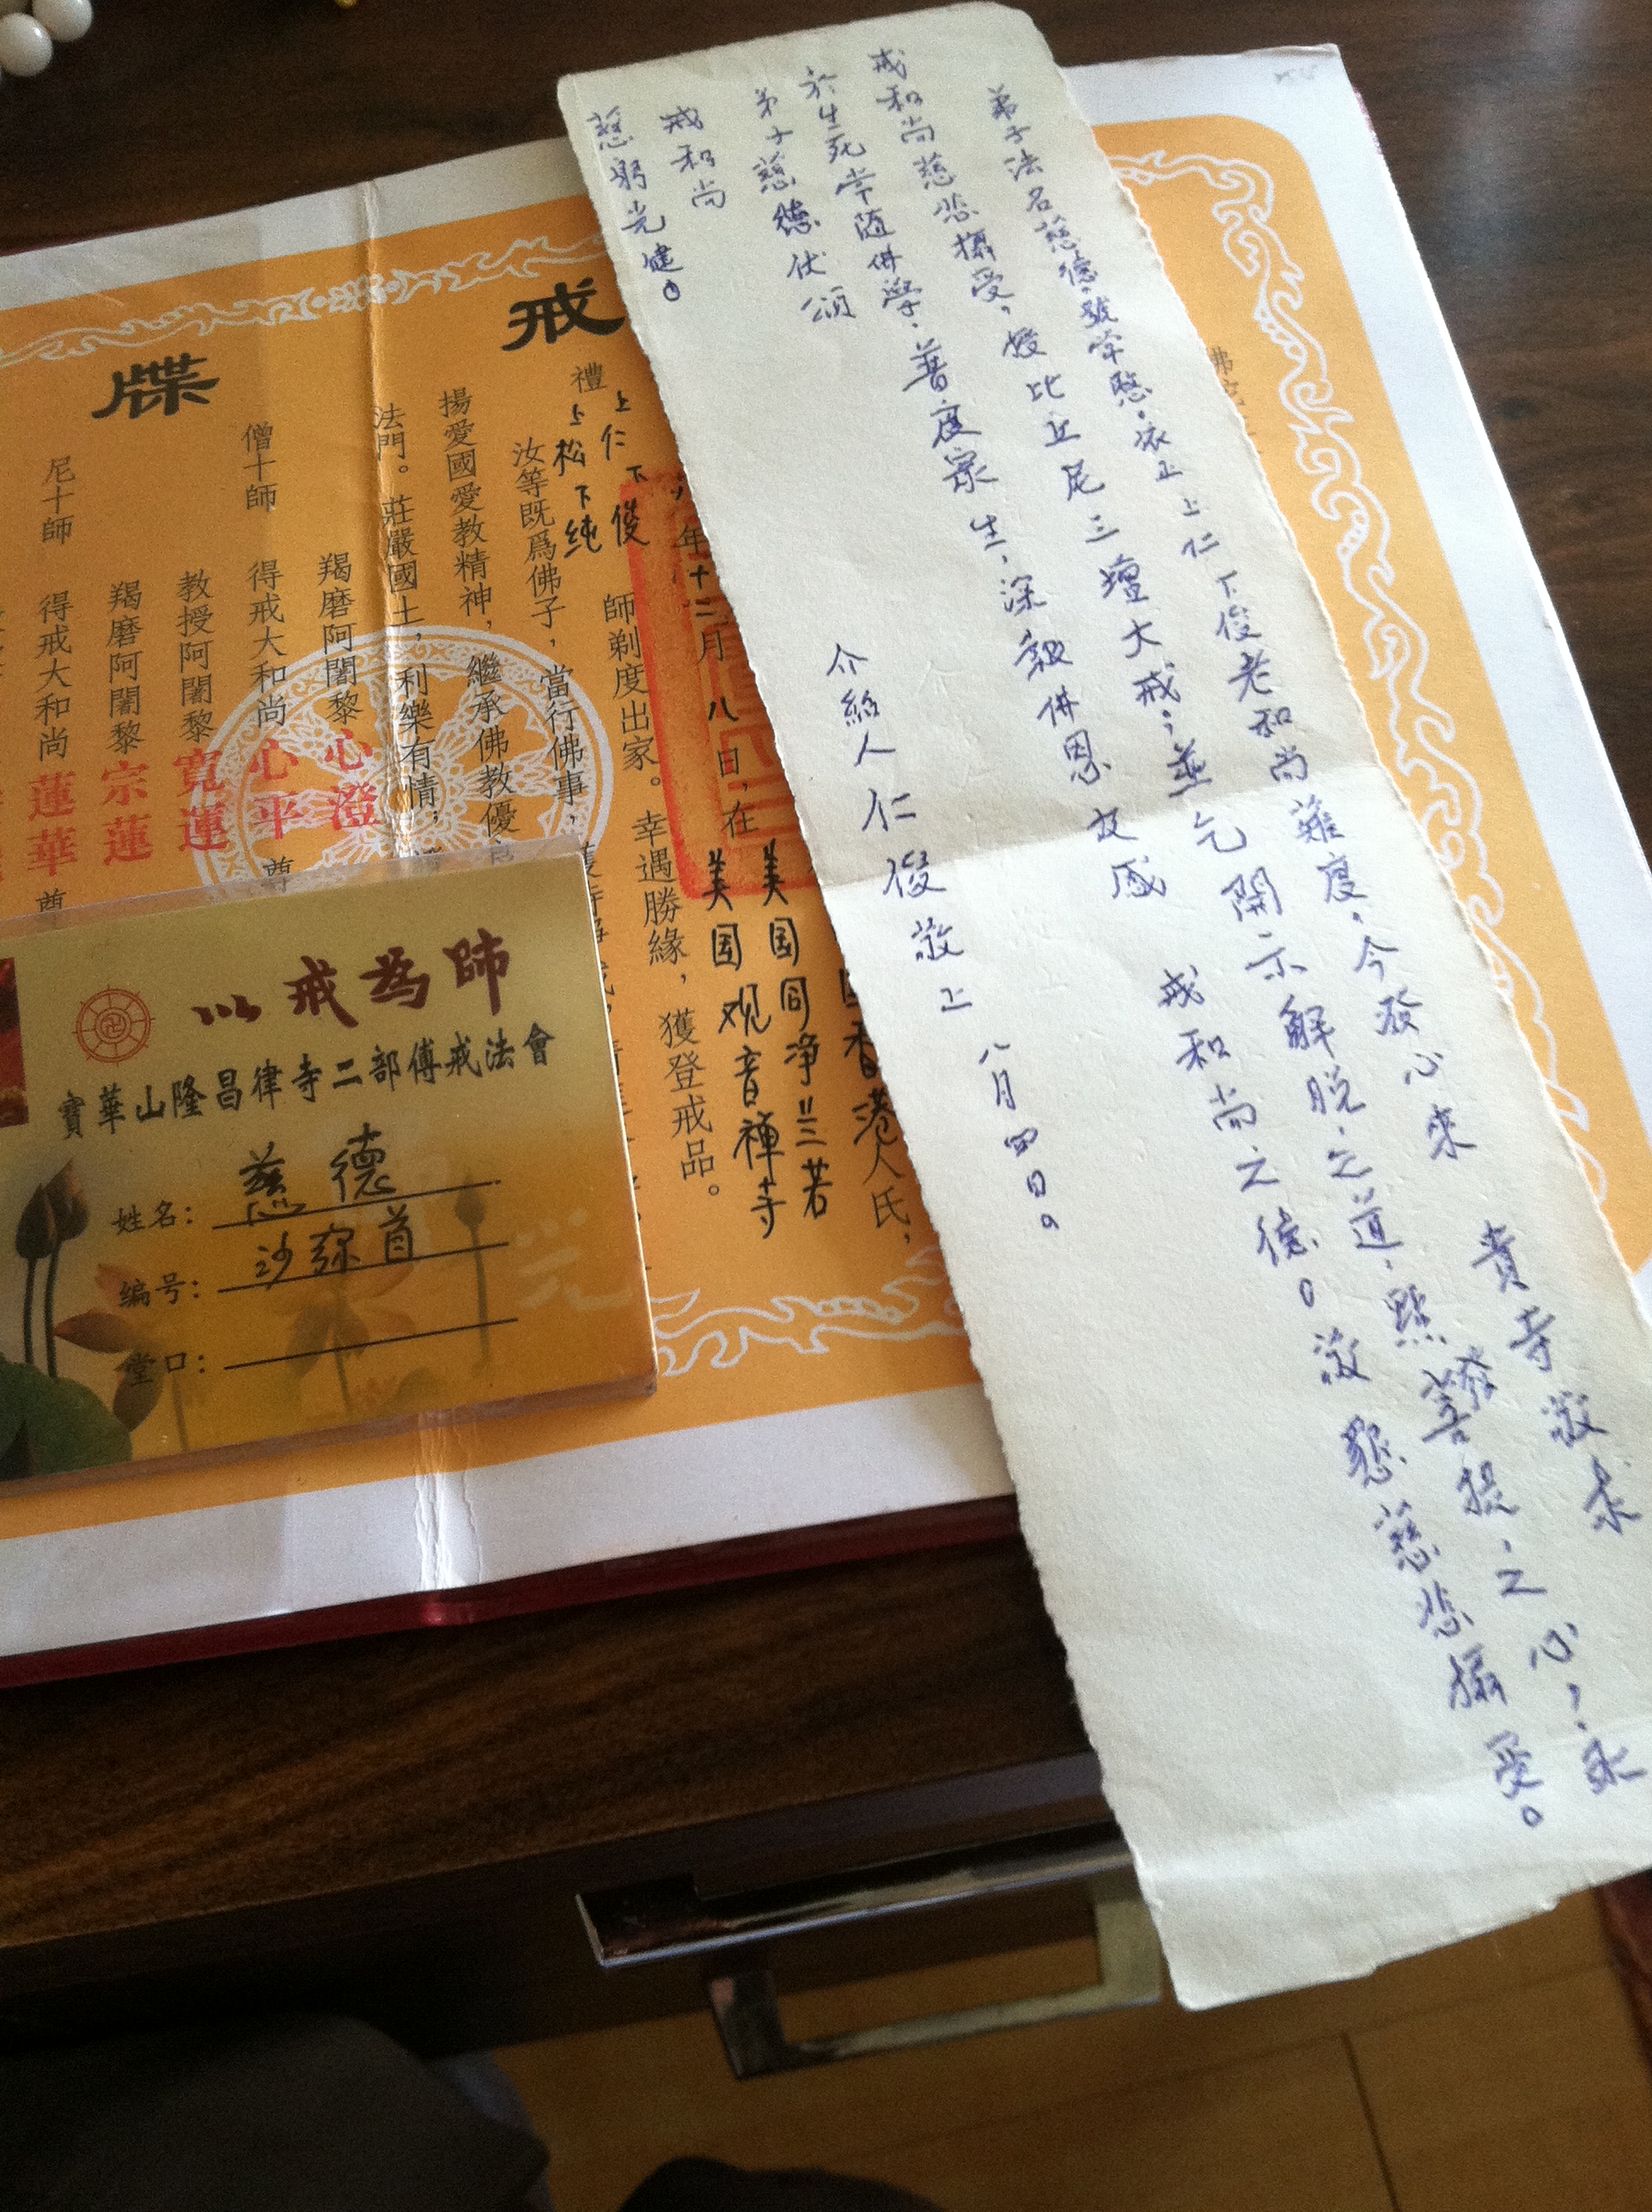 弟子法名慈德，號常愍，依止上仁下俊老和尚薙度，今發心來 貴寺敬求
戒和尚慈悲攝受，授比丘尼三壇大戒；並乞開示解脱之道，發菩提之心，永
於生死常隨佛學，普度眾生，深報佛恩，
戒和尚之德。敬懇慈悲攝受。
弟子慈德伏頌
戒和尚
慈躬光健。
介紹人仁俊敬上 八月四日。
戒
牒
人氏，
美国同净兰若
美国观音禅寺
年十二月八日，在
禮
上仁下俊
上松下纯
師剃度出家。幸遇勝緣，獲登戒品。
汝等既爲佛子，當行佛事，
揚愛國愛教精神，繼承佛教優
法門。莊嚴國土，利樂有情；
羯磨阿闍黎 心澄
僧十師 得戒大和尚 心平 尊
教授阿闍黎 寬蓮
羯磨阿闍黎 宗蓮
尼十師 得戒大和尚 蓮華 尊
以戒為師
寶華山隆昌律寺二部傳戒法會
姓名：慈德
编号：沙弥首
堂口：